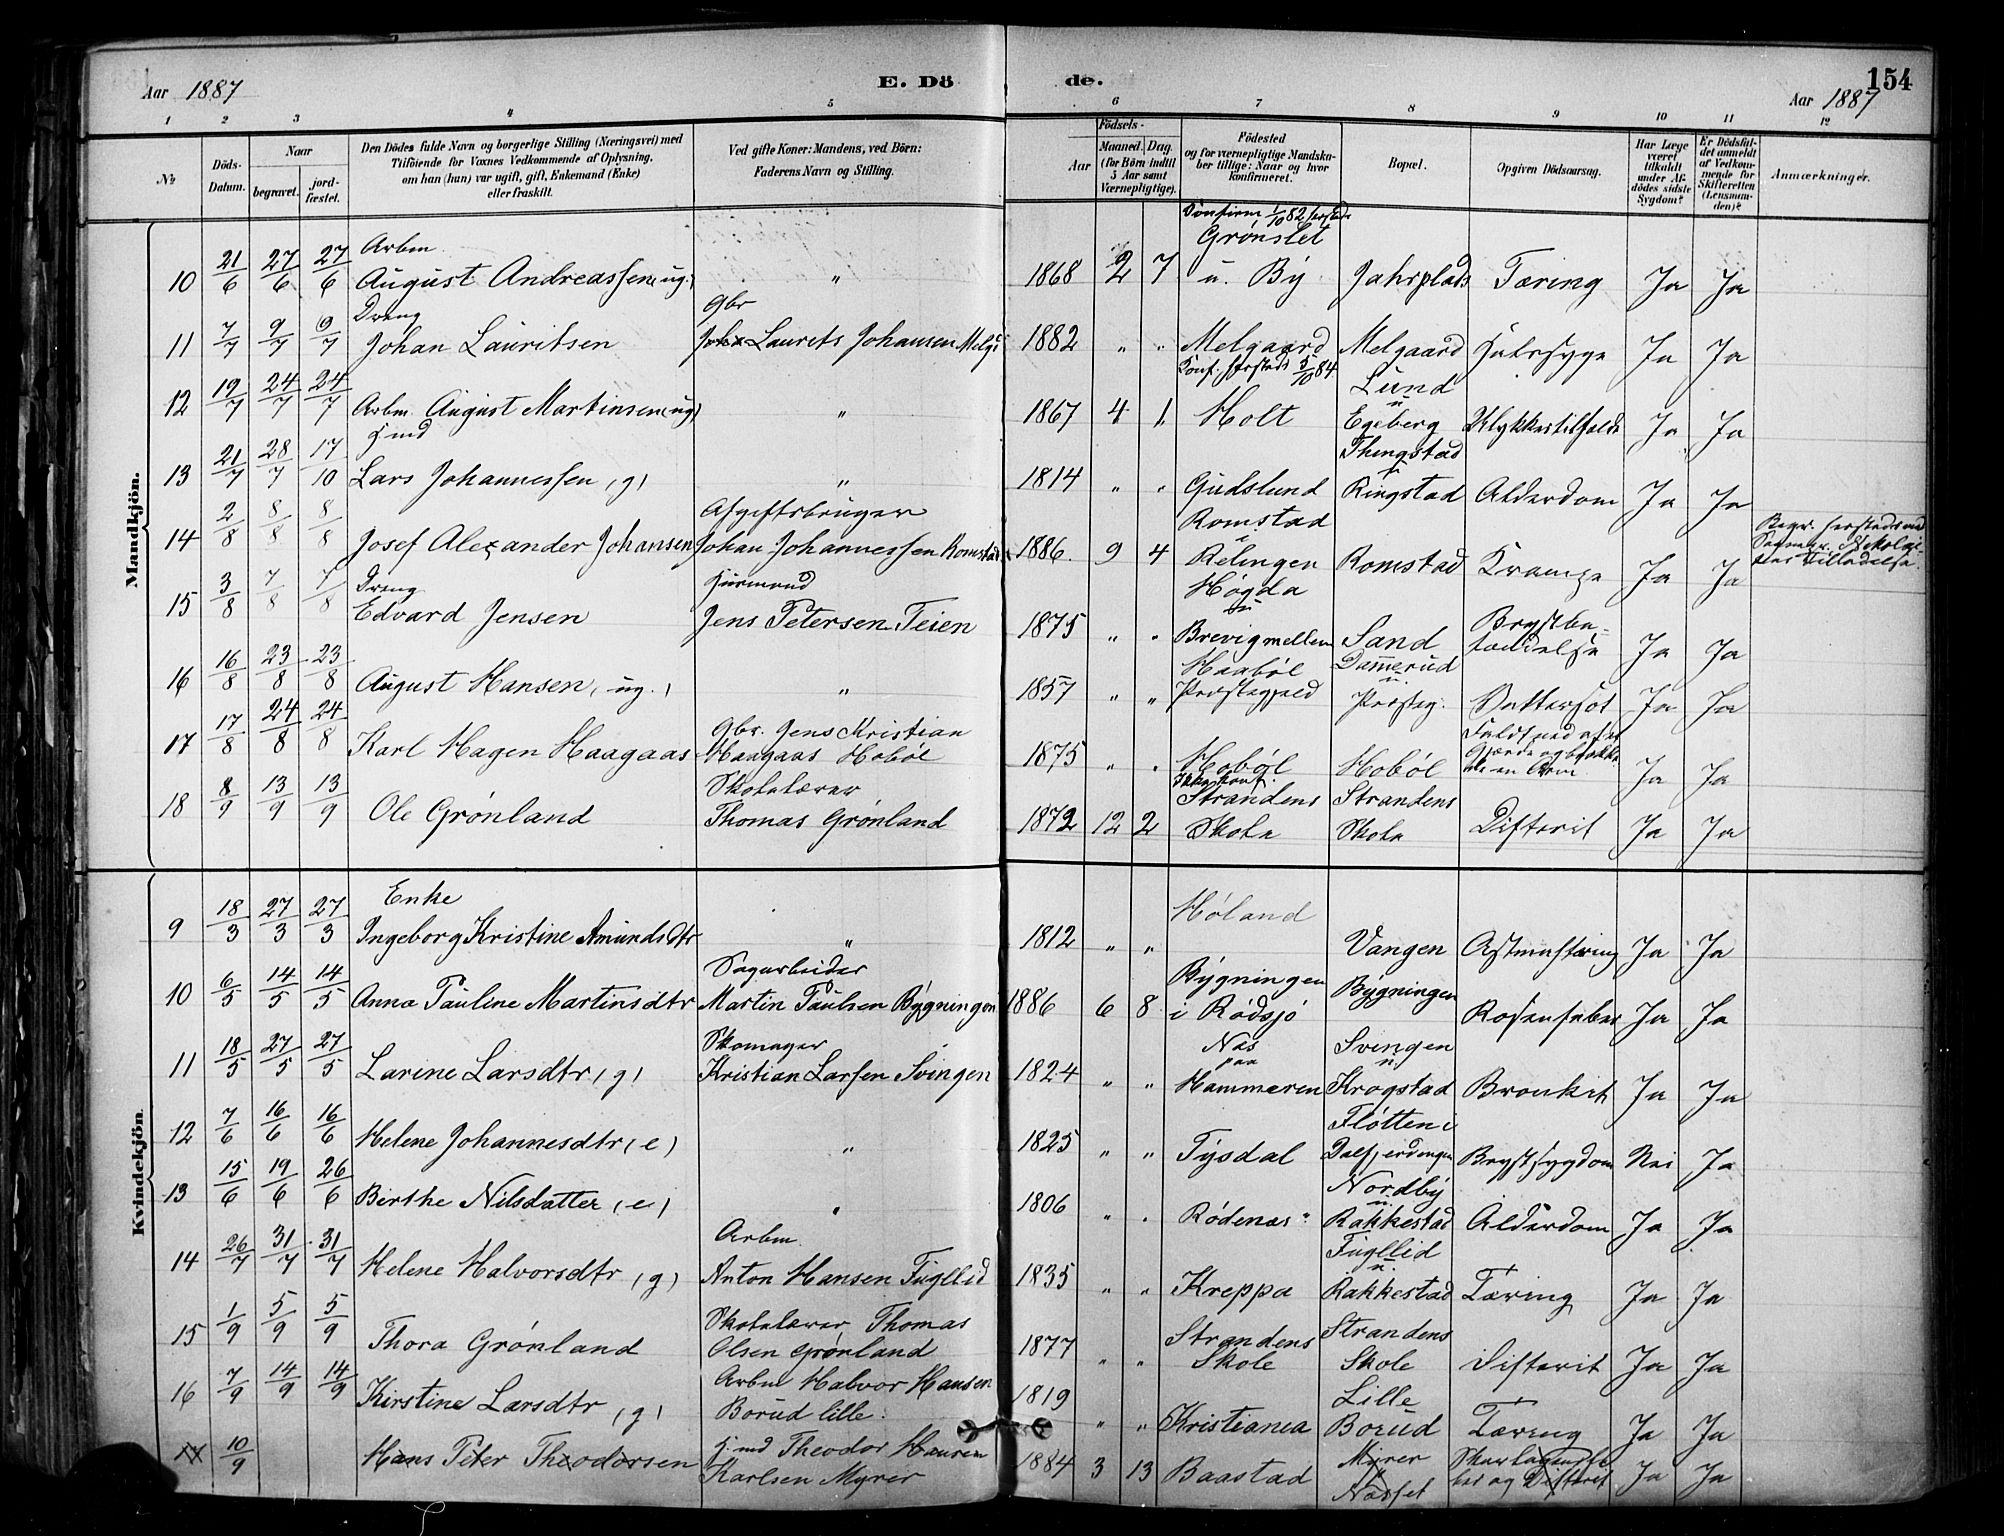 Aar 1887
E. Dö
de.
154
Aar 1887
1 2 3 4 5 6 7 8 9 10 11 12
№
Döds-Datum.
Naar
begravet.
jord-fæstet.
Den Dödes fulde Navn og borgerlige Stilling (Næringsvei) med
Tilföiende for Voxnes Vedkommende af Oplysning,
om han (hun) var ugift, gift, Enkemand (Enke)
eller fraskilt.
Ved gifte Koner: Mandens, ved Börn:
Faderens Navn og Stilling.
Födsels-
Aar
Maaned.
Dag.
(for Börn indtil
5 Aar samt
Værnepligtige).
Födested
og for værnepligtige Mandska-
ber tillige: Naar og hvor
konfirmeret.
Bopæl.
Opgiven Dödsaarsag.
Har Læge
været
tilkaldt
under Af-
dödes sidste
Sygdom?
Er Dödsfal-
det anmeldt
af Vedkom-
mende for
Skifteretten
(Lensman-
den)?
Anmærkninger.
Mandkjön.
Konfirm 1/10 82 hersteds
Arbm Grønslet
10 21/6 27/6 27/6 August Andreassen (ug.) " 1868 2 7 u. By Jahrplads Tæring Ja Ja
Dreng Gbr
11 7/7 9/7 9/7 Johan Lauritsen Laurits Johansen Melgd 1882 " " Melgaard Melgaard Halssyge Ja Ja
Konf. hersteds 5/10 84 Lund
12 19/7 24/7 24/7 Arbm August Martinsen (ug) " 1867 4 1 Holt u Egeberg Ulykkestilfælde Ja Ja
Hmd Thingstad
13 21/7 28/7 17/10 Lars Johannessen (g) " 1814 " " Gudslund u Ringstad Alderdom Ja Ja
Afgiftsbruger Romstad Begr. herstedsved
14 2/8 8/8 8/8 Josef Alexander Johansen Johan Johannessen Romstad 1886 9 4 i Relingen Romstad Krampe Ja Ja
Dreng Huusmand Høgda
15 3/8 7/8 7/8 Edvard Jensen Jens Petersen Teien 1875 " " u Brevigmellem Sand Brystbe-
tændelse Ja Ja
Haabøl Dammerud
16 16/8 23/8 23/8 August Hansen (ug.) " 1857 " " Præstegjeld u. Præsteg. Vattersot Ja Ja
Gbr. Jens Kristian
17 17/8 24/8 24/8 Karl Hagen Haagaas Haagaas Hobøl 1875 " " Hobøl Hobøl Faldt ned af et
Gjærde og brække
de en Arm Ja Ja
Skolelærer Ikke konf. Strandens Strandens
18 8/9 13/9 13/9 Ole Grønland Thomas Grønland 1872 12 2 Skole Skole Difterit Ja Ja
Kvindekjön.
Enke Høland
9 18/3 27/3 27/3 Ingeborg Kristine Amundsdtr " 1812 " " Vangen Astma Tæring Ja Ja
Sagarbeider Bygningen
10 6/5 14/5 14/5 Anna Pauline Martinsdtr Martin Paulsen Bygningen 1886 6 8 i Rødsjø Bygningen Rosenfeber Ja Ja
Skomager Næs Svingen
11 18/5 27/5 27/5 Larine Larsdtr (g) Kristian Larsen Svingen 1824 " " paa Hammeren u. Krogstad Bronkit Ja Ja
Fløtten i
12 7/6 16/6 16/6 Helene Johannesdtr (e) " 1825 " " Tysdal Dalfjerdingen Brystsygdom Nei Ja
Nordby
13 15/6 19/6 26/6 Berthe Nilsdatter (e) " 1806 " " Rødenæs u. Rakkestad Alderdom Ja Ja
Arbm Fugllid
14 26/7 31/7 31/7 Helene Halvorsdtr (g) Anton Hansen Fugllid 1835 " " Kreppa u. Rakkestad Tæring Ja Ja
Skolelærer Thomas Strandens Strandens
15 1/9 5/9 5/9 Thora Grønland Olsen Grønland 1877 " " Skole Skole Difterit Ja Ja
Arbm Halvor Hansen Lille
16 7/9 14/9 14/9 Kirstine Larsdtr (g) Borud lille 1819 " " Kristiania Borud Tæring Ja Ja
Hmd Theodor Hansen Myrer
17 10/9 Hans Peter Theodorsen Karlsen Myrer 1884 3 13 Baastad u Næsset Skarlagensfe
ber og Difterit Ja Ja